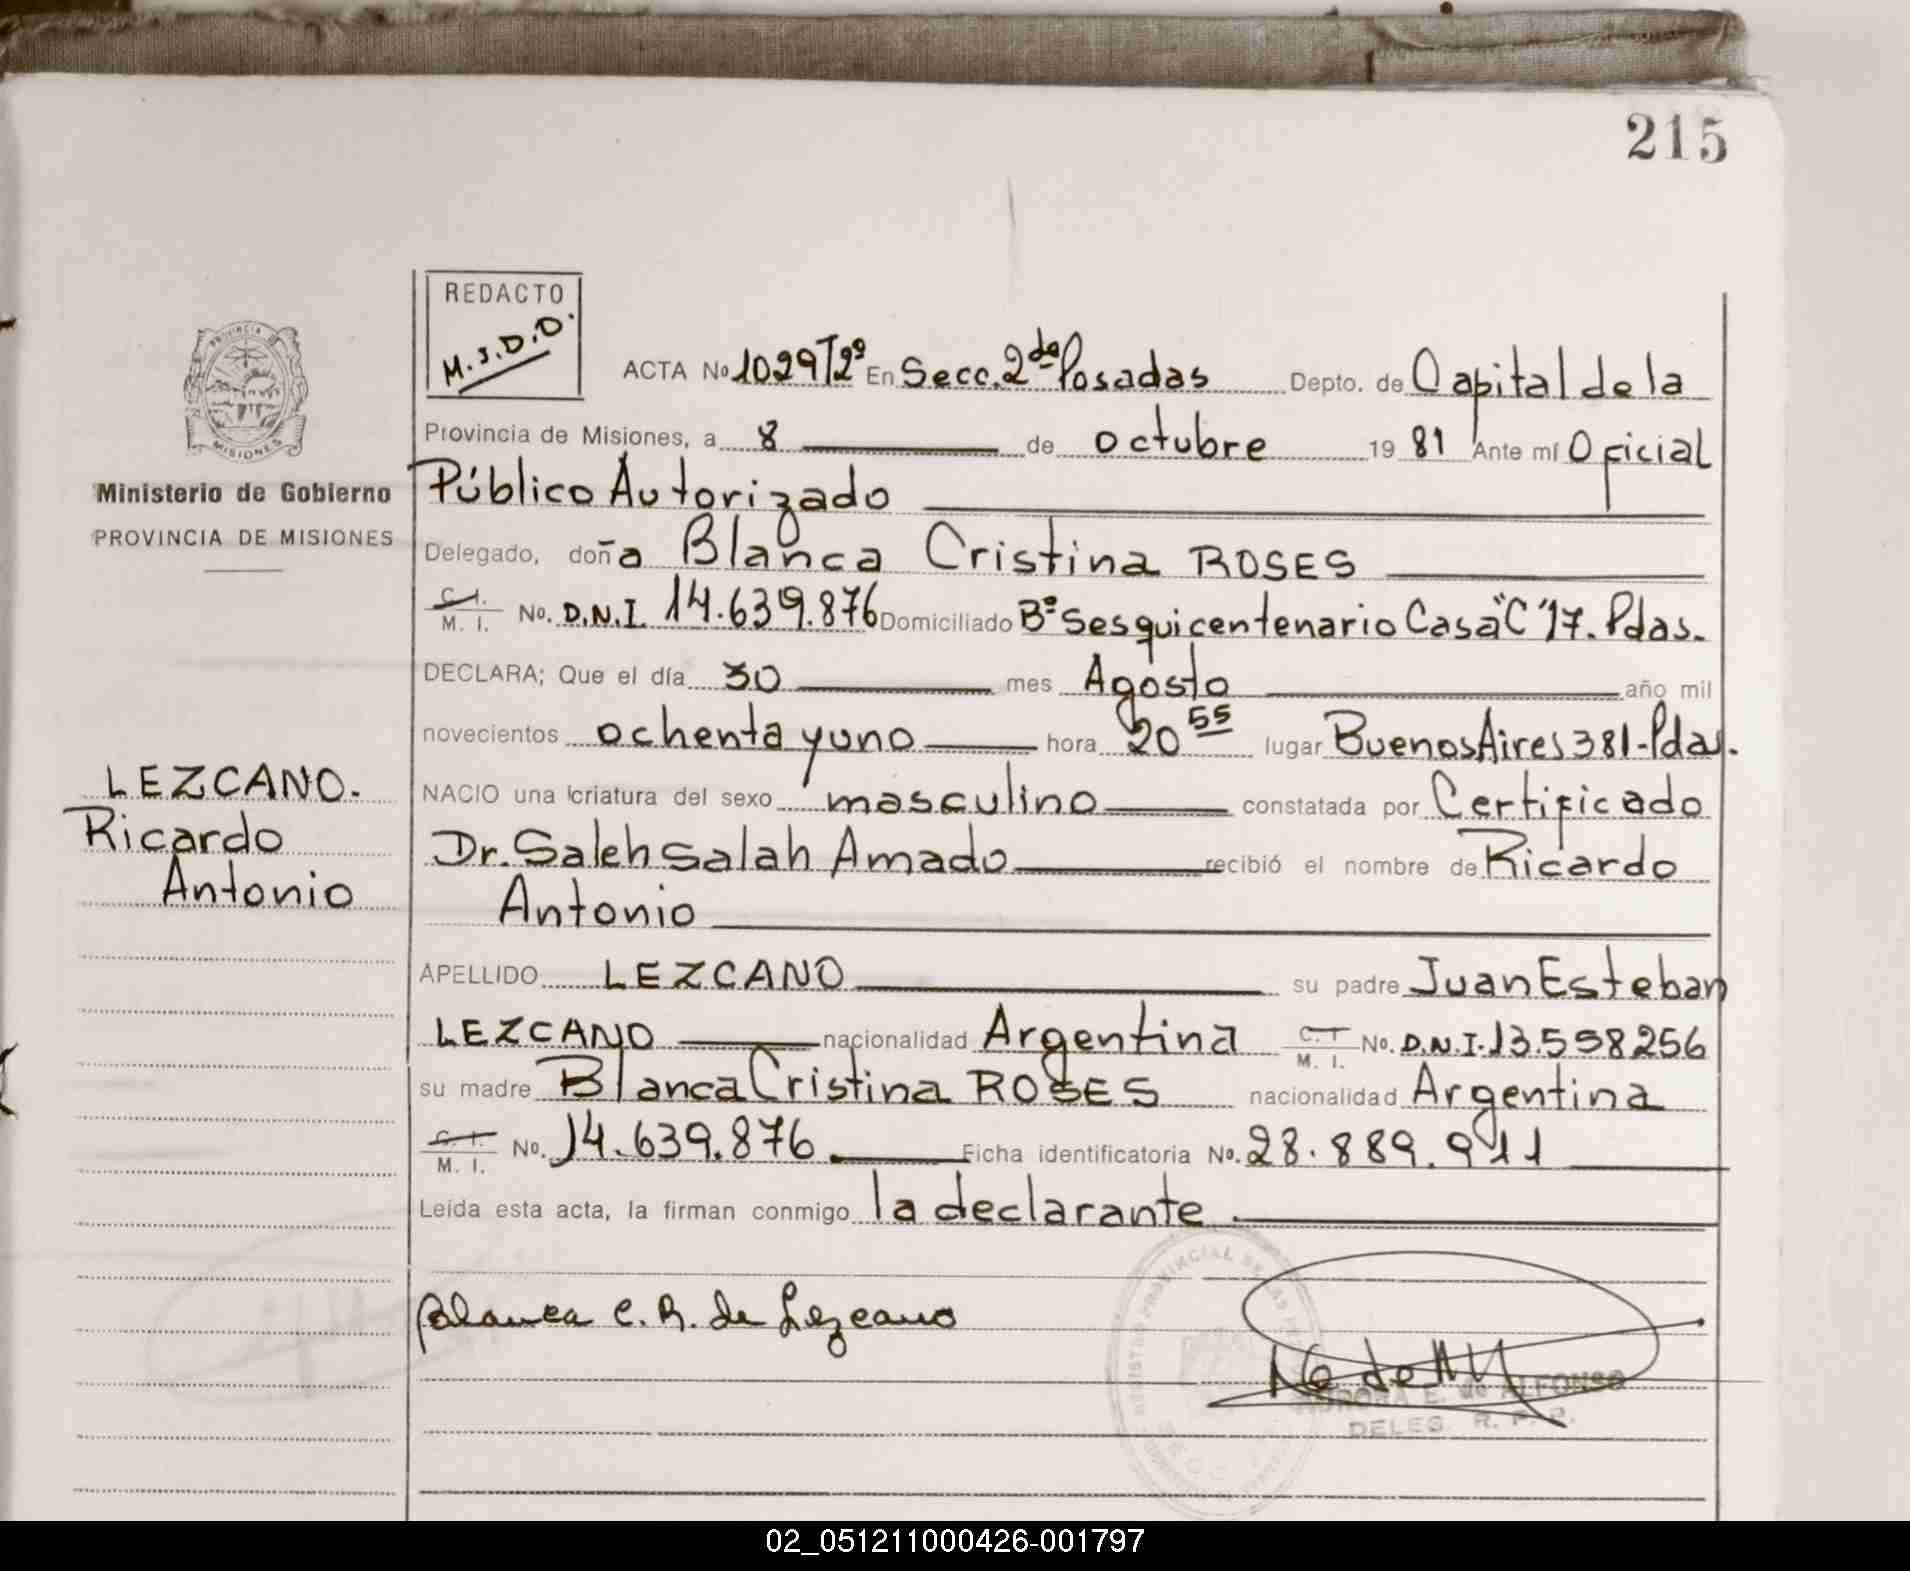 215
REDACTO
M.S.D.O.
ACTA No 1029 T2º En Secc. 2da Posadas Depto. de Capital de la
Provincia de Misiones, a 8 de octubre 19 81 Ante mí Oficial
Público Autorizado
Delegado, doña Blanca Cristina ROSES
C. I.
M. I. No. D.N.I. 14.639.876 Domiciliado Bº Sesquicentenario Casa "C" 17. Pdas.
DECLARA; Que el día 30 mes Agosto año mil
novecientos ochenta y uno hora 20 55 lugar Buenos Aires 381-Pdas.
NACIO una criatura del sexo masculino constatada por Certificado
Dr. Saleh Salah Amado recibió el nombre de Ricardo
Antonio
APELLIDO LEZCANO su padre Juan Esteban
LEZCANO nacionalidad Argentina C. I. M. I. No. D.N.I. 13.558256
su madre Blanca Cristina ROSES nacionalidad Argentina
C. I.
M. I. No. 14.639.876 Ficha identificatoria No. 28.889.911
Leída esta acta, la firman conmigo la declarante
Blanca C. R. de Lezcano
AURORA E. de ALFONSO
DELEG. R. P. P.
PROVINCIA
MISIONES
Ministerio de Gobierno
PROVINCIA DE MISIONES
LEZCANO.
Ricardo
Antonio
REGISTRO PROVINCIAL DE LAS
02_051211000426-001797